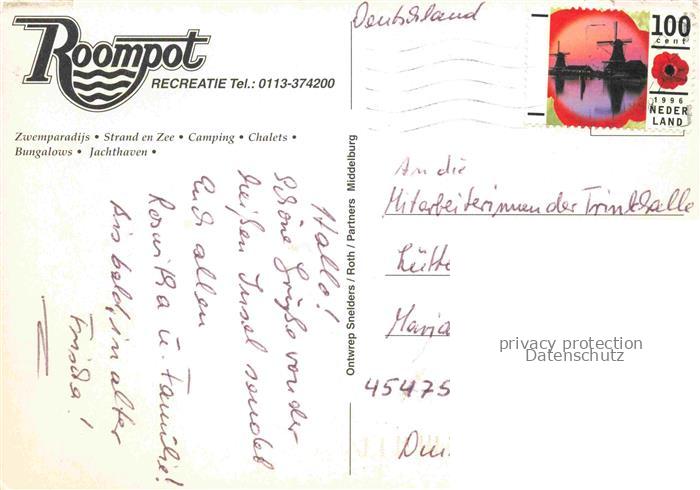 Roompot
RECREATIE Tel.: 0113-374200
Zwemparadijs • Strand en Zee • Camping • Chalets •
Bungalows • Jachthaven •
Hallo!
Schöne Grüße von der
heißen Insel sendet
Euch allen
Roswitha u. Familie!
Bis bald, in alter
Frische!
Ontwerp Snelders / Roth / Partners Middelburg
Deutschland
100
cent
1996
NEDER
LAND
An die
Mitarbeiterinnen der Trinkhalle
Lütt
Marja
45475
privacy protection
Datenschutz